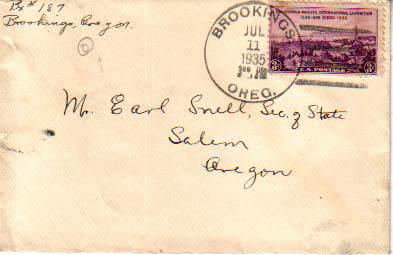 Bx# 187
Brookings, Oregon.
D
BROOKINGS
JUL
11
1935
OREG.
CALIFORNIA PACIFIC INTERNATIONAL EXPOSITION
1935 SAN DIEGO 1935
3 U.S. POSTAGE 3
Mr. Earl Snell, Sec. of State
Salem
Oregon